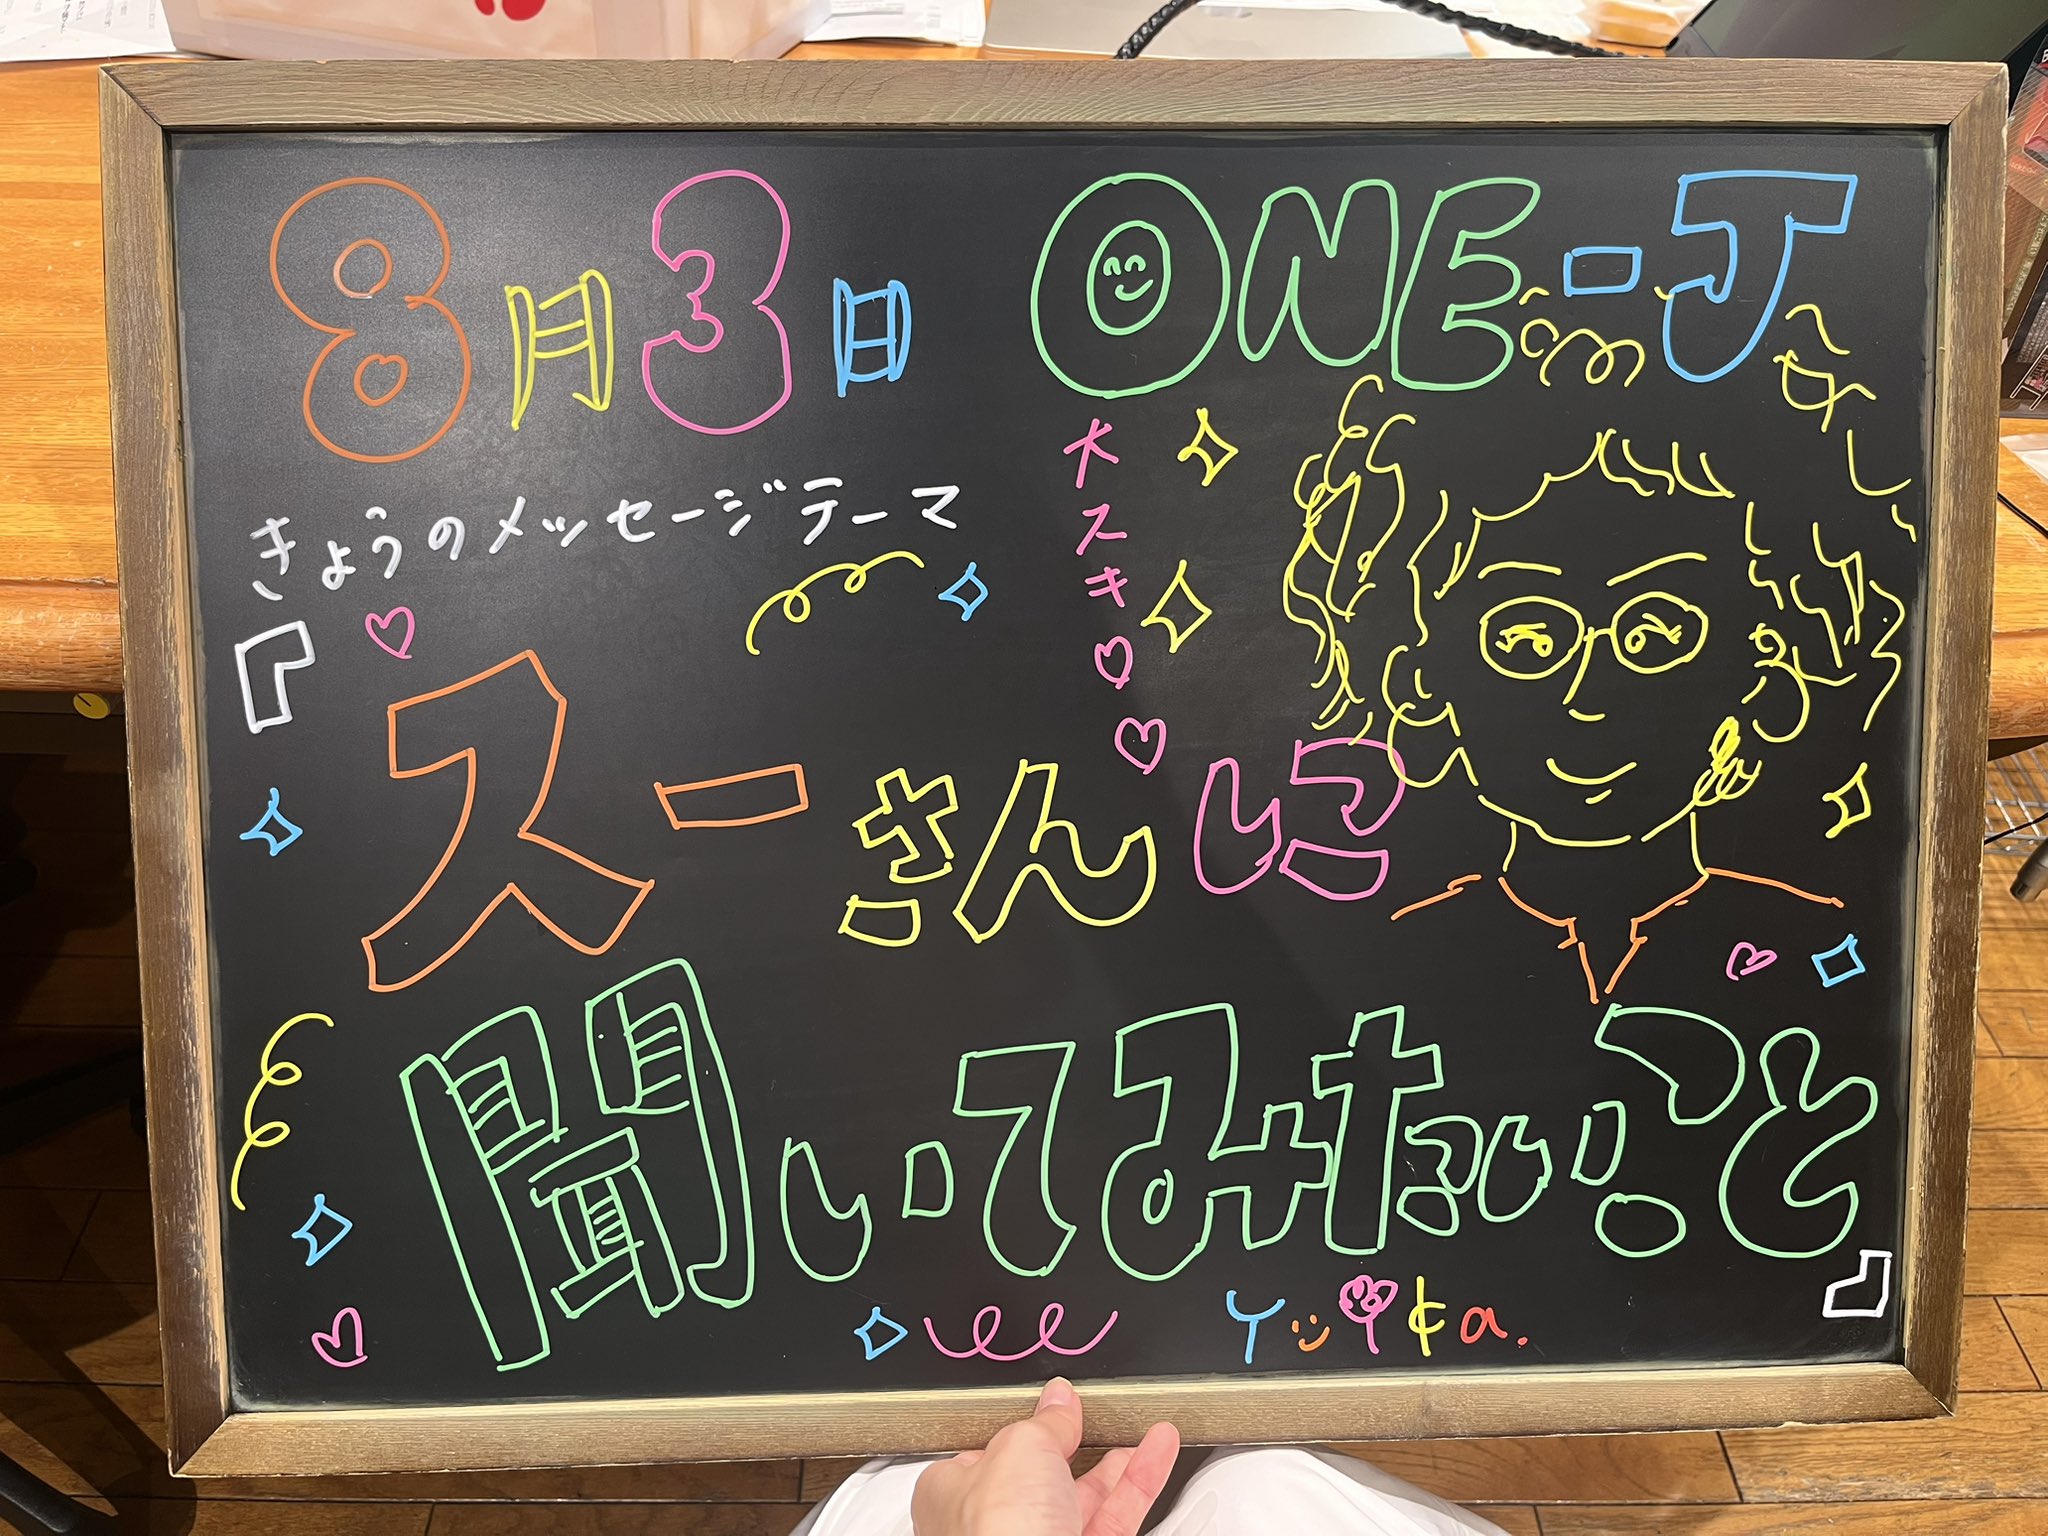 8月3日
ONE-J
きょうのメッセージテーマ
大スキ♡♡
『スーさんに
聞いてみたいこと』
Yuka.